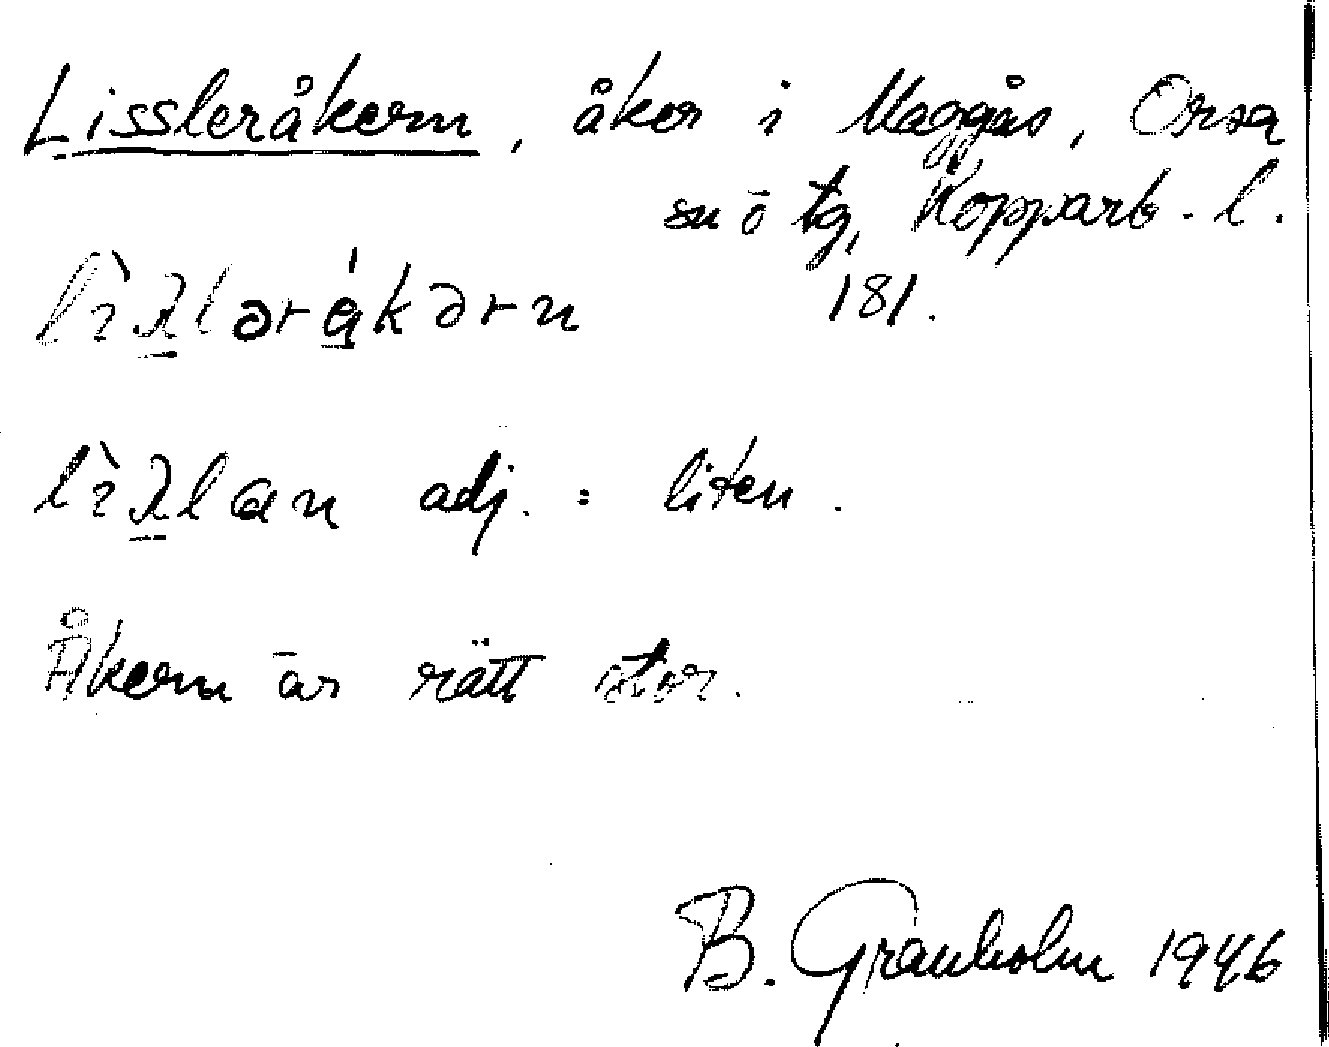 Lissleråkern, åker i Maggås, Orsa
sn o tg, Kopparb. l.
181.
adj. = liten.
Åkern är rätt stor.
B. Granholm 1946